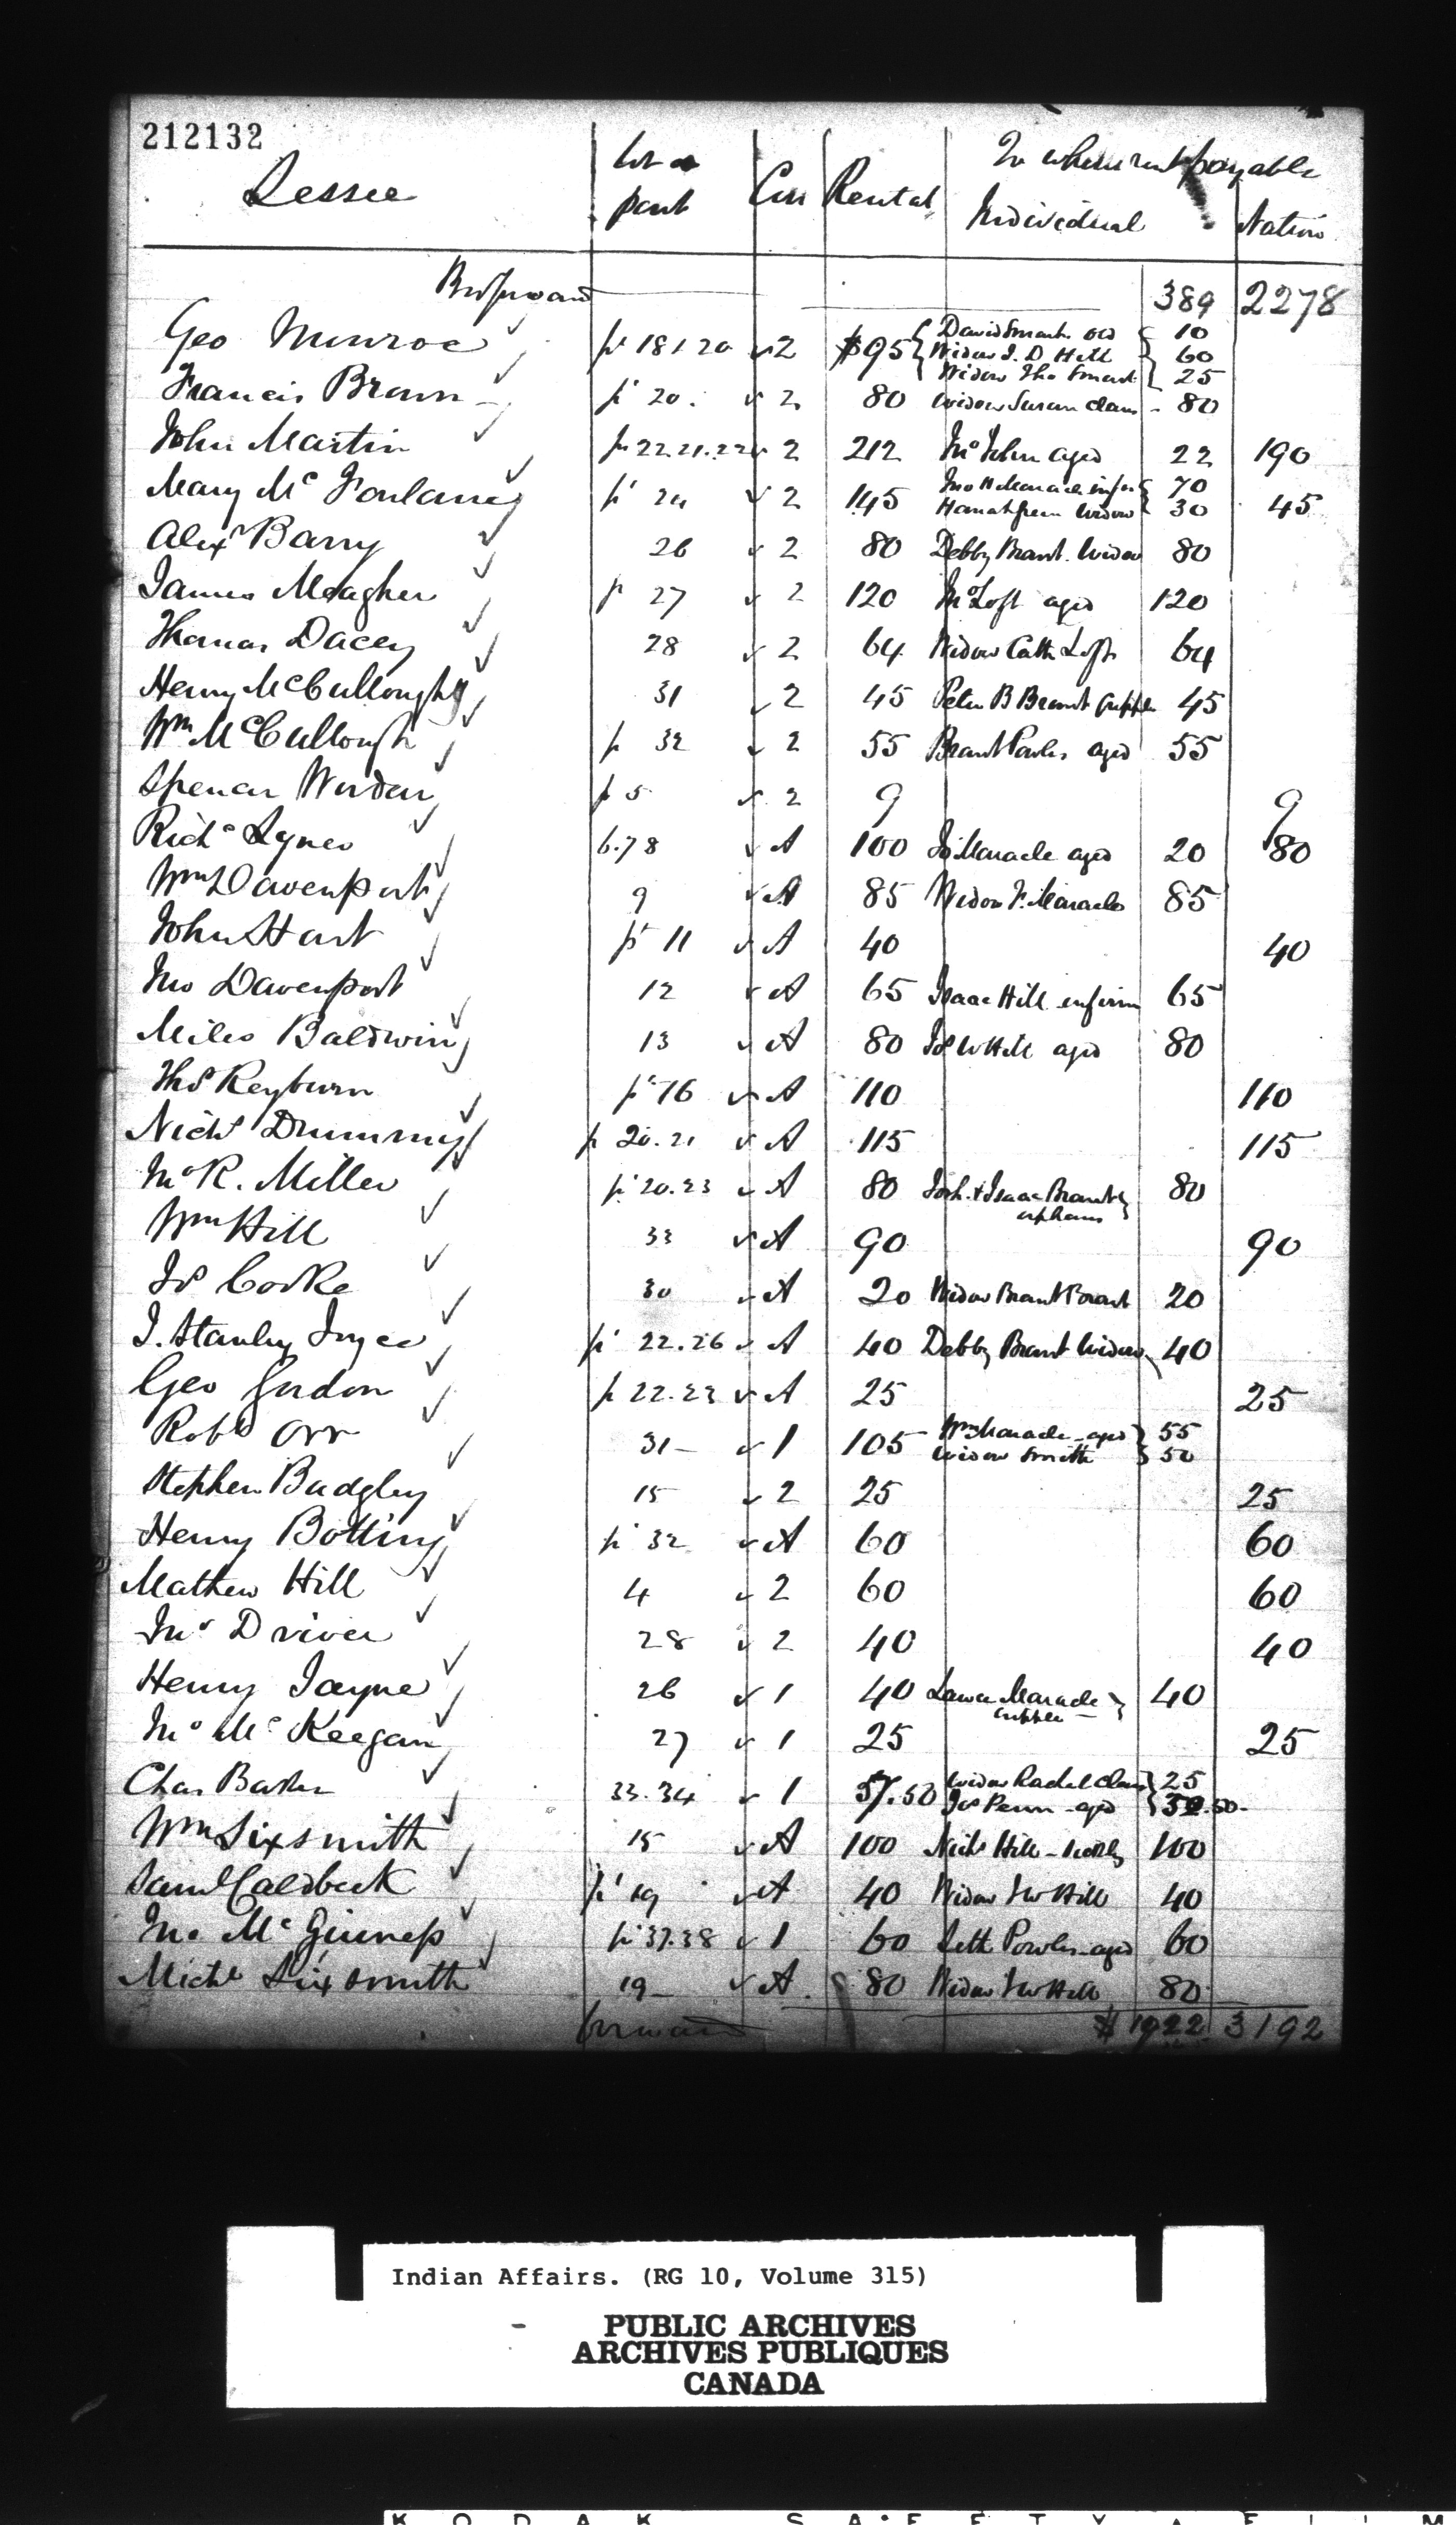 212132
Lessee
Lot or part
Con
Rental
To whom rent payable
Individual
Nation
Brot forward 389 2278
Geo Munroe pt 18 & 20 2 $95 { David Smart old 10
Widow J. D. Hill 60
Widow Tho Smart 25
Francis Brown pt 20. 2 80 Widow Susan Claus - 80
John Martin pt 22.21.22 2 212 Jno John aged 22 190
Mary Mc Farlane pt 24 2 145 Jno H Maracle infirm 70
Hanah Green Widow 30 45
Alexr Barry 26 2 80 Debby Brant. Widow 80
James Meagher p 27 2 120 Jno Loft aged 120
Thomas Dacey 28 2 64 Widow Cath Loft 64
Henry McCullough 31 2 45 Peter B Brant cripple 45
Wm McCullough p 32 2 55 Brant Powles aged 55
Spencer Worden p 5 2 9 9
Richd Lynes 6.7 8 A 100 Js Maracle aged 20 80
Wm Davenport 9 A 85 Widow F. Maracle 85
John Hart pt 11 A 40 40
Jno Davenport 12 A 65 Isaac Hill infirm 65
Miles Baldwin 13 A 80 Js W Hill aged 80
Thos Reyburn pt 16 A 110 110
Nichs Drummy p 20.21 A 115 115
Jno R. Miller pt 20.23 A 80 Josh. & Isaac Brant } 80
orphans
Wm Hill 33 A 90 90
Js Corke 30 A 20 Widow Brant Brant 20
J. Stanley Joyce pt 22.26 A 40 Debby Brant Widow 40
Geo Gordon p 22.23 A 25 25
Robt Orr 31 - 1 105 Wm Maracle - aged } 55
Widow Smith } 50
Stephen Badgley 15 2 25 25
Henry Botting pt 32 A 60 60
Mathew Hill 4 2 60 60
Jno Driver 28 2 40 40
Henry Jayne 26 1 40 Lawce Maracle } 40
cripple -
Jno Mc Keegan 27 1 25 25
Chas Barker 33.34 1 57.50 Widow Rachel Claus } 25
Jos Penn - aged } 32.50 -
Wm Sixsmith 15 A 100 Nichs Hill - sickly 100
Saml Caldbeck pt 19 A 40 Widow J W Hill 40
Jno Mc Ginness pt 37.38 1 60 Seth Powles - aged 60
Michl Sixsmith 19 - A. 80 Widow J W Hill 80
forward $ 1922 3192
Indian Affairs. (RG 10, Volume 315)
PUBLIC ARCHIVES
ARCHIVES PUBLIQUES
CANADA
KODAK SAFETY FILM